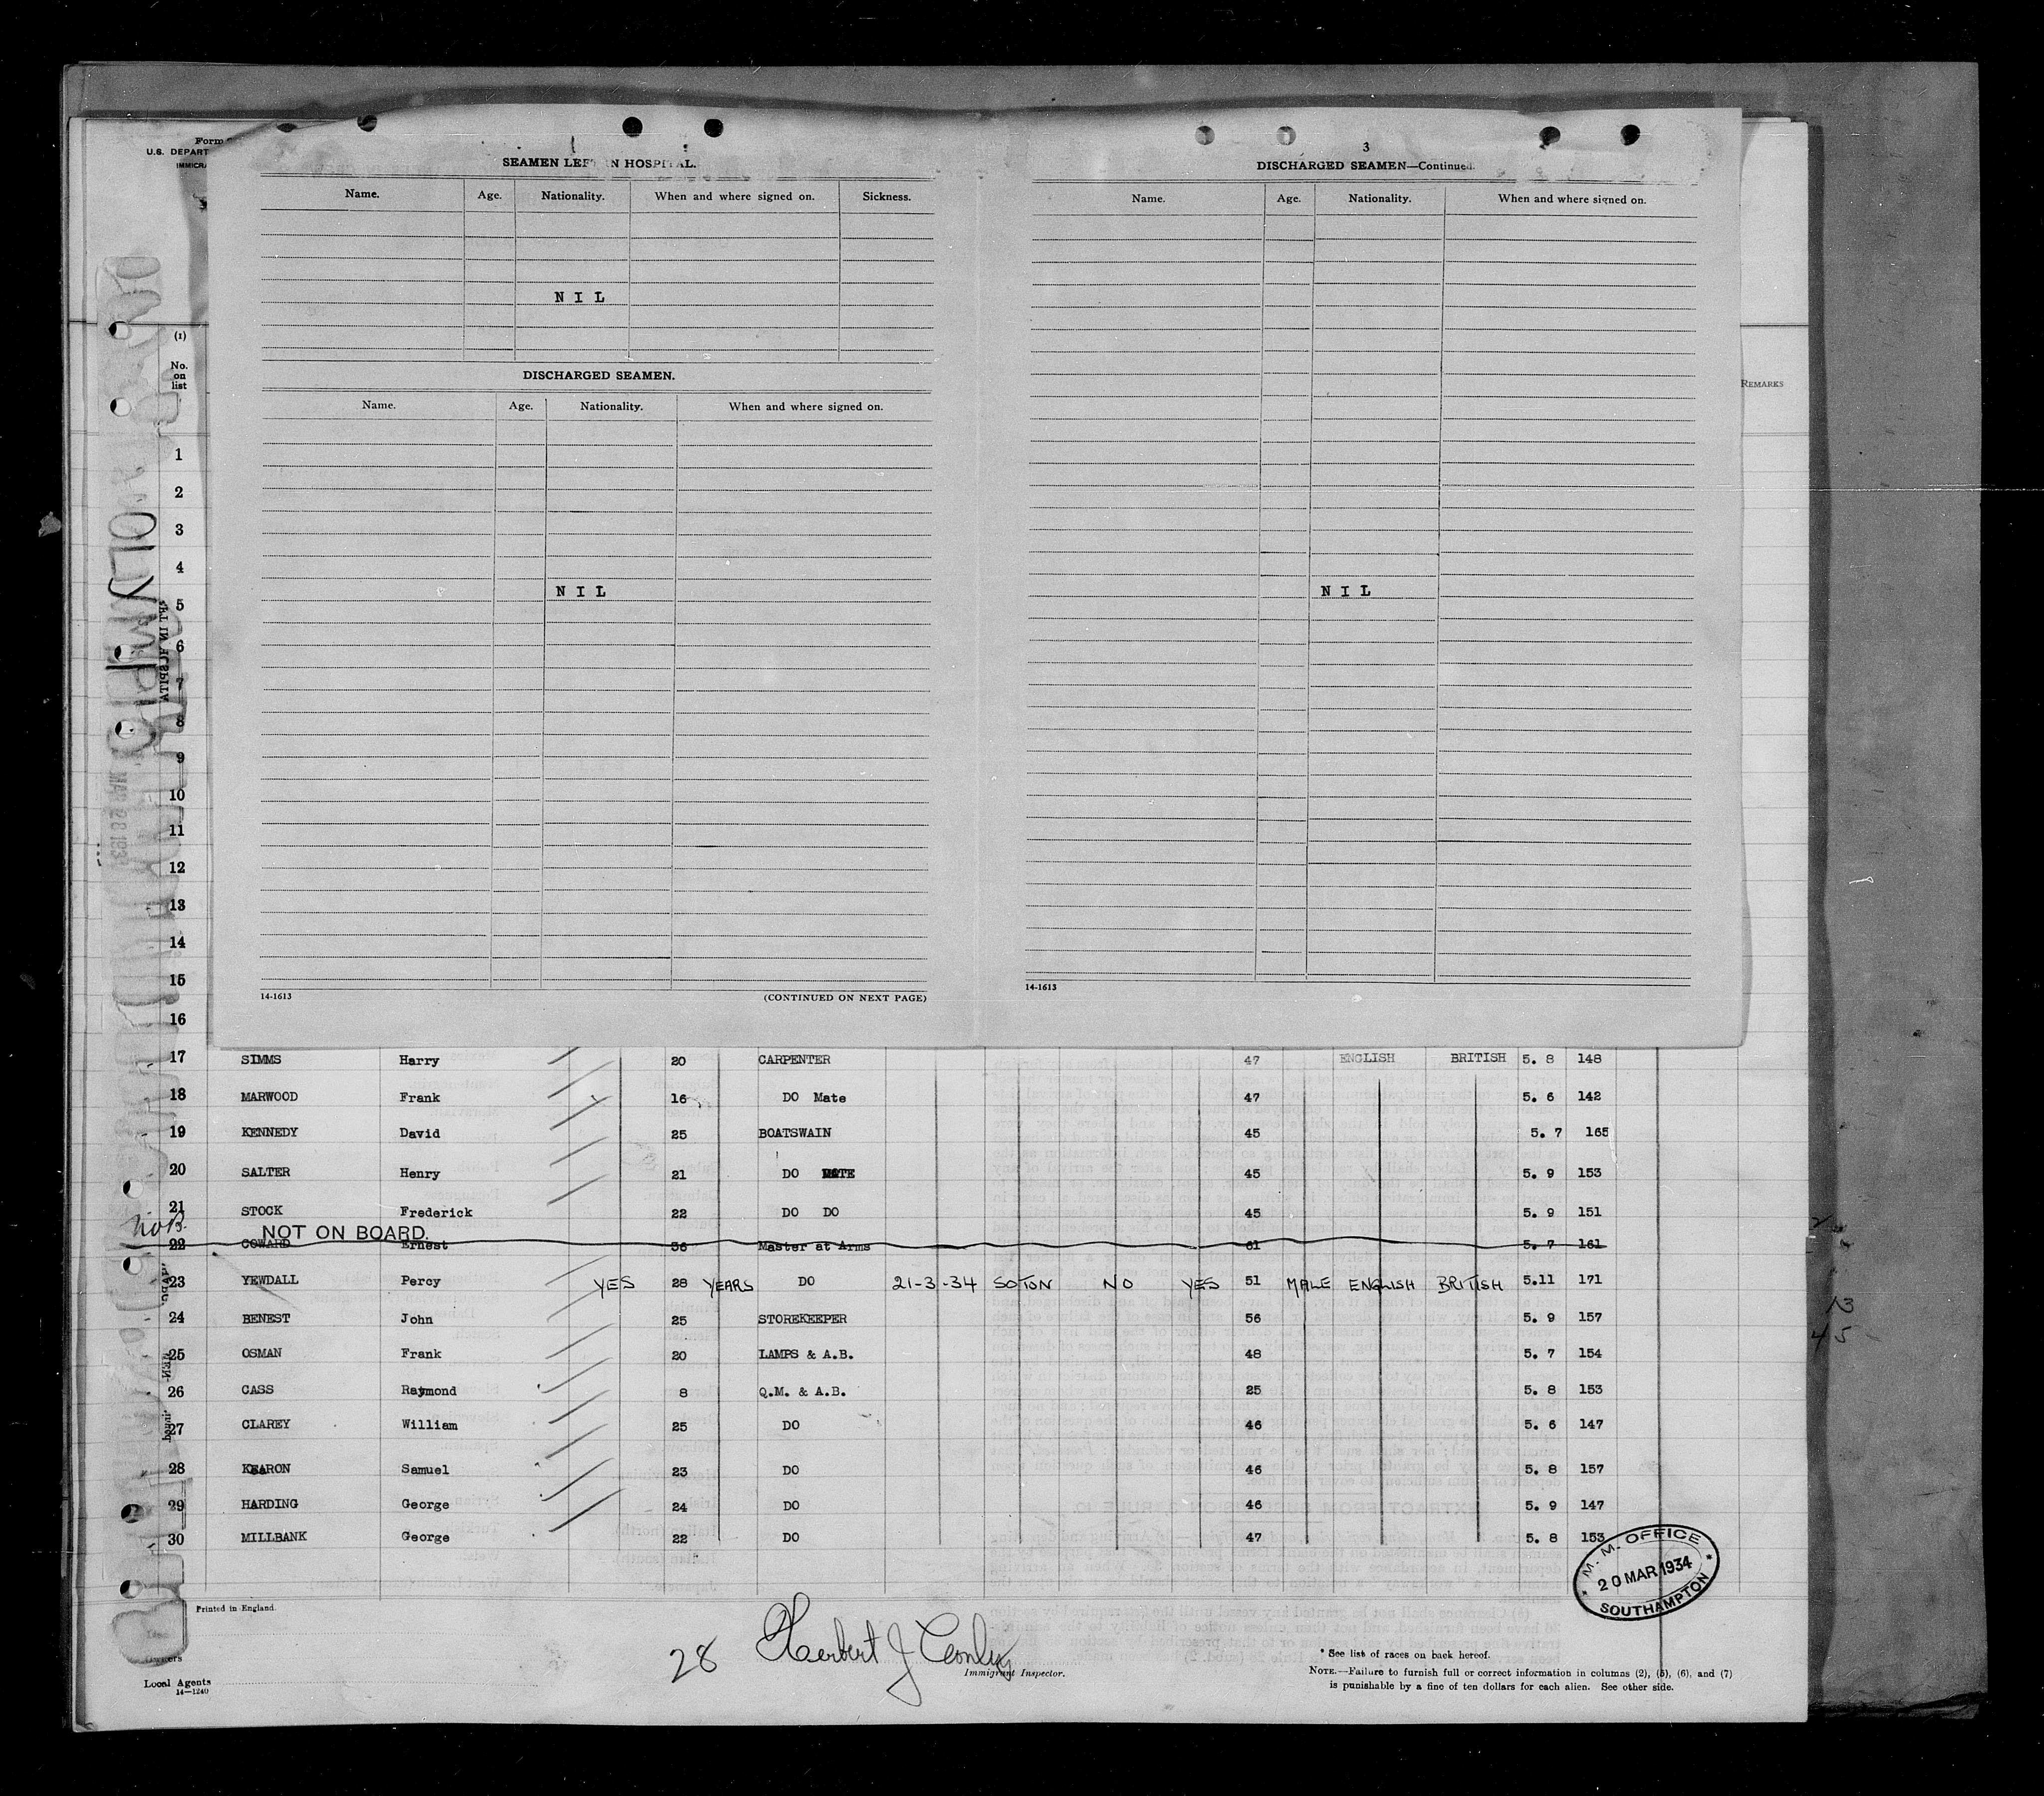 Form
U.S. DEPART
IMMIGRA
SEAMEN LEFT IN HOSPITAL.
Name. Age. Nationality. When and where signed on. Sickness.
N I L
DISCHARGED SEAMEN.
Name. Age. Nationality. When and where signed on.
N I L
14-1613 (CONTINUED ON NEXT PAGE)
3
DISCHARGED SEAMEN—Continued.
Name. Age. Nationality. When and where signed on.
N I L
14-1613
REMARKS
(1)
No.
on
list
OLYMPIC
1
2
3
4
5
6
7
8
9
10
11
12
13
14
15
16
17 SIMMS Harry 20 CARPENTER 47 ENGLISH BRITISH 5. 8 148
18 MARWOOD Frank 16 DO Mate 47 5. 6 142
19 KENNEDY David 25 BOATSWAIN 45 5. 7 165
20 SALTER Henry 21 DO MATE 45 5. 9 153
21 STOCK Frederick 22 DO DO 45 5. 9 151
NOB. NOT ON BOARD.
22 COWARD Ernest 36 Master at Arms 61 5. 7 161
23 YEWDALL Percy YES 28 YEARS DO 21-3-34 SOTON NO YES 51 MALE ENGLISH BRITISH 5.11 171
24 BENEST John 25 STOREKEEPER 56 5. 9 157
25 OSMAN Frank 20 LAMPS & A.B. 48 5. 7 154
26 CASS Raymond 8 Q.M. & A.B. 25 5. 8 153
27 CLAREY William 25 DO 46 5. 6 147
28 KEARON Samuel 23 DO 46 5. 8 157
29 HARDING George 24 DO 46 5. 9 147
30 MILLBANK George 22 DO 47 5. 8 153
M. M. OFFICE
20 MAR 1934
SOUTHAMPTON
Printed in England.
28 Herbert J Conley
Immigrant Inspector.
Owners
Local Agents
14—1240
* See list of races on back hereof.
NOTE.—Failure to furnish full or correct information in columns (2), (5), (6), and (7)
is punishable by a fine of ten dollars for each alien. See other side.